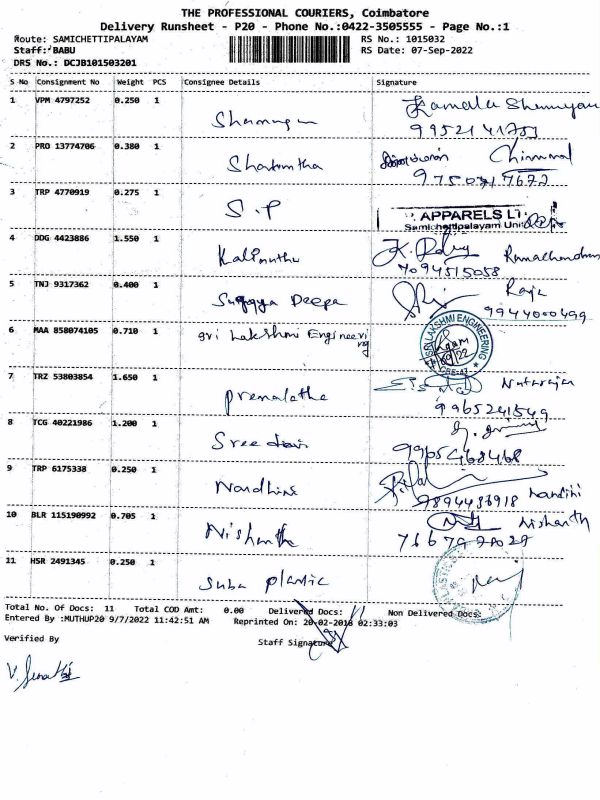 THE PROFESSIONAL COURIERS, Coimbatore
Delivery Runsheet - P20 - Phone No.:0422-3505555 - Page No.:1
Route: SAMICHETTIPALAYAM RS No.: 1015032
Staff: BABU RS Date: 07-Sep-2022
DRS No.: DCJB101503201
S No Consignment No Weight PCS Consignee Details Signature
1 VPM 4797252 0.250 1 Shanmugam
2 PRO 13774706 0.380 1 Shakuntha
3 TRP 4770919 0.275 1 S.P
APPARELS
Samichettipalayam Unit
4 DDG 4423886 1.550 1 Kalimuthu K. Ramachandran
7094515058
5 TNJ 9317362 0.400 1 Deepa Raja
9944000499
6 MAA 858074105 0.710 1 Sri Lakshmi Engineering
SRI LAKSHMI ENGINEERING
7 TRZ 53803854 1.650 1 Premalatha Natarajan
9965241549
8 TCG 40221986 1.200 1
9965468468
9 TRP 6175338 0.250 1 Nandhini nandini
9894437918
10 BLR 115190992 0.705 1 Nishantha Nishanth
11 HSR 2491345 0.250 1 Suba plastic
Total No. Of Docs: 11 Total COD Amt: 0.00 Delivered Docs: 11 Non Delivered Docs:
Entered By :MUTHUP20 9/7/2022 11:42:51 AM Reprinted On: 20-02-2018 02:33:03
Verified By Staff Signature